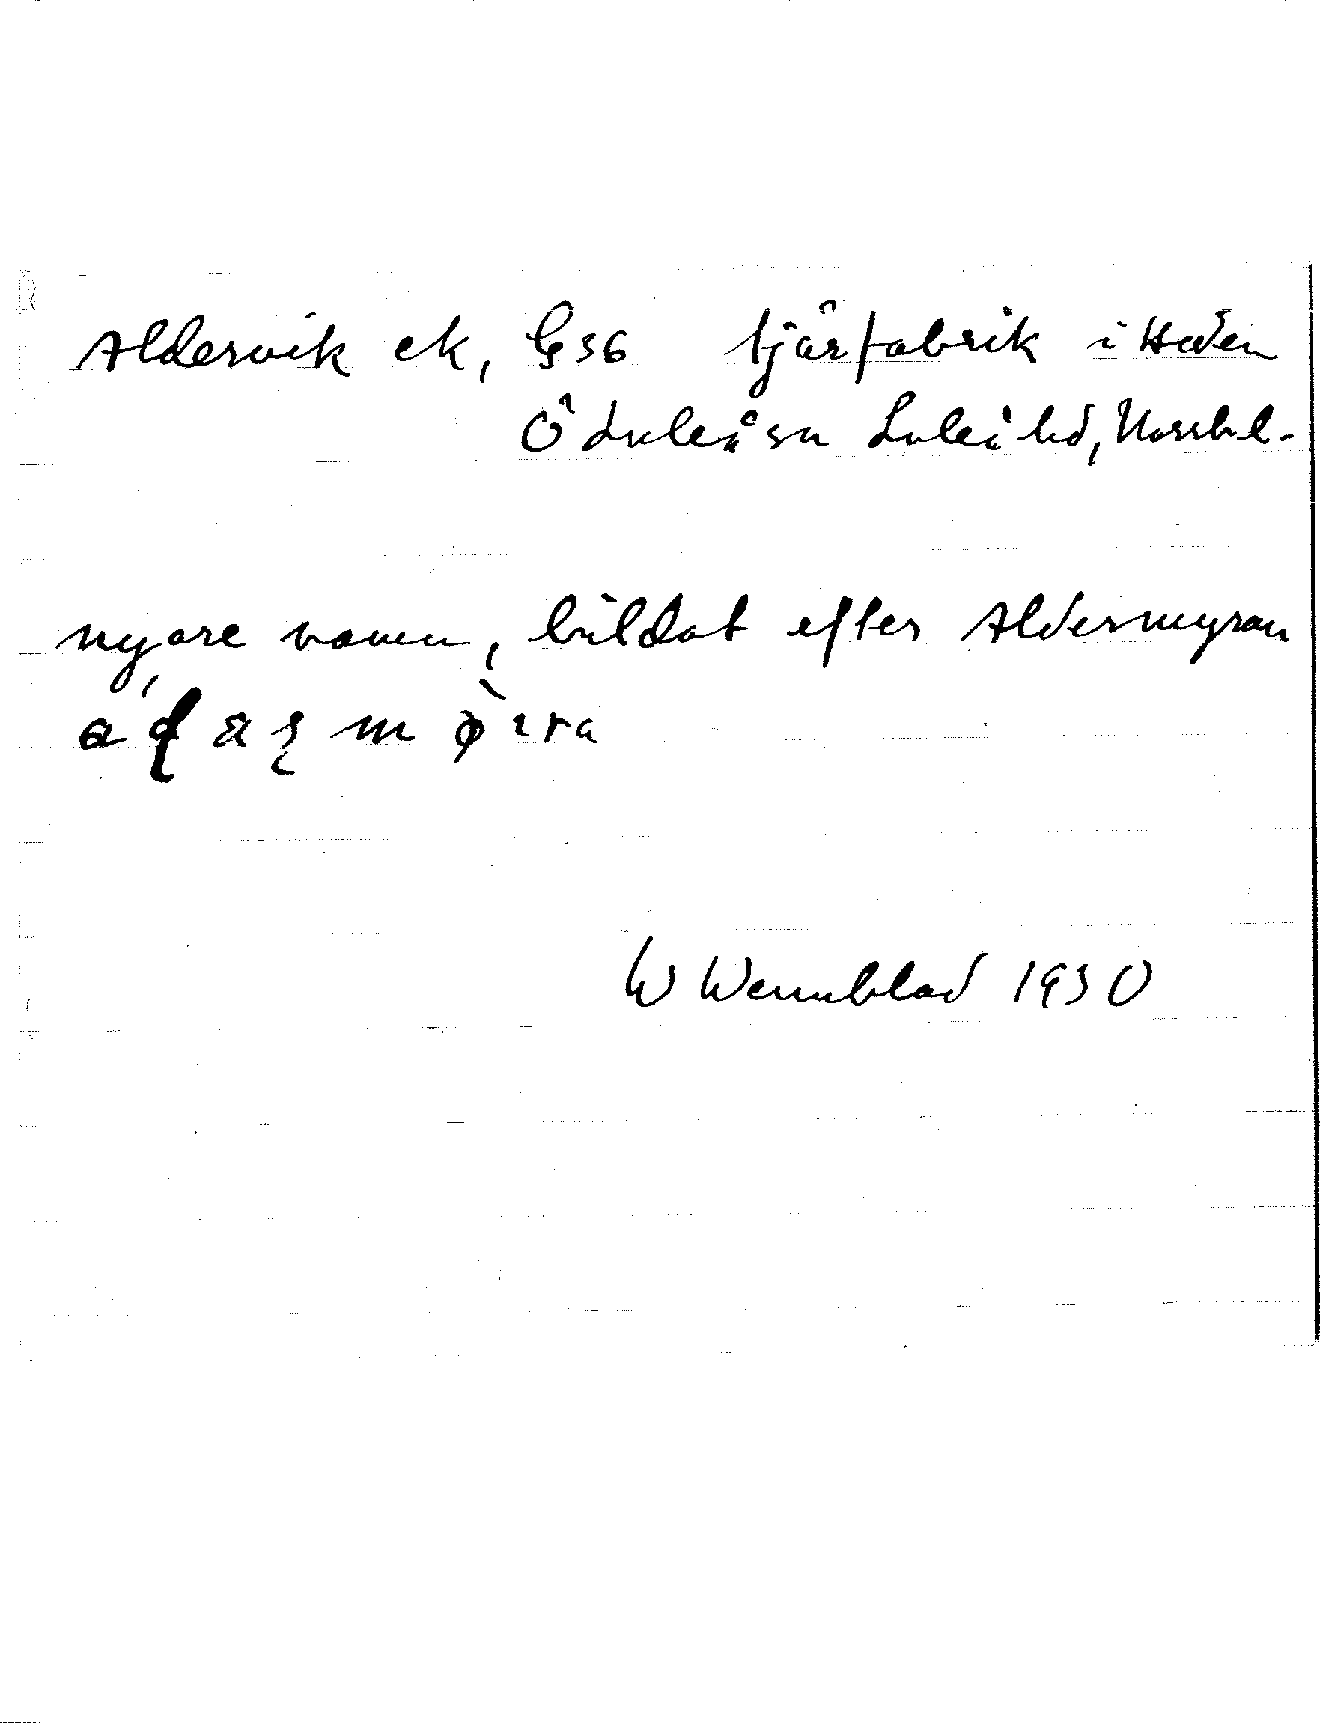 Aldervik ek, G36 tjärfabrik i Heden
Ö Luleå sn Luleå hd, Norrb l.
nyare namn, bildat efter Aldermyran
W Wennblad 1930